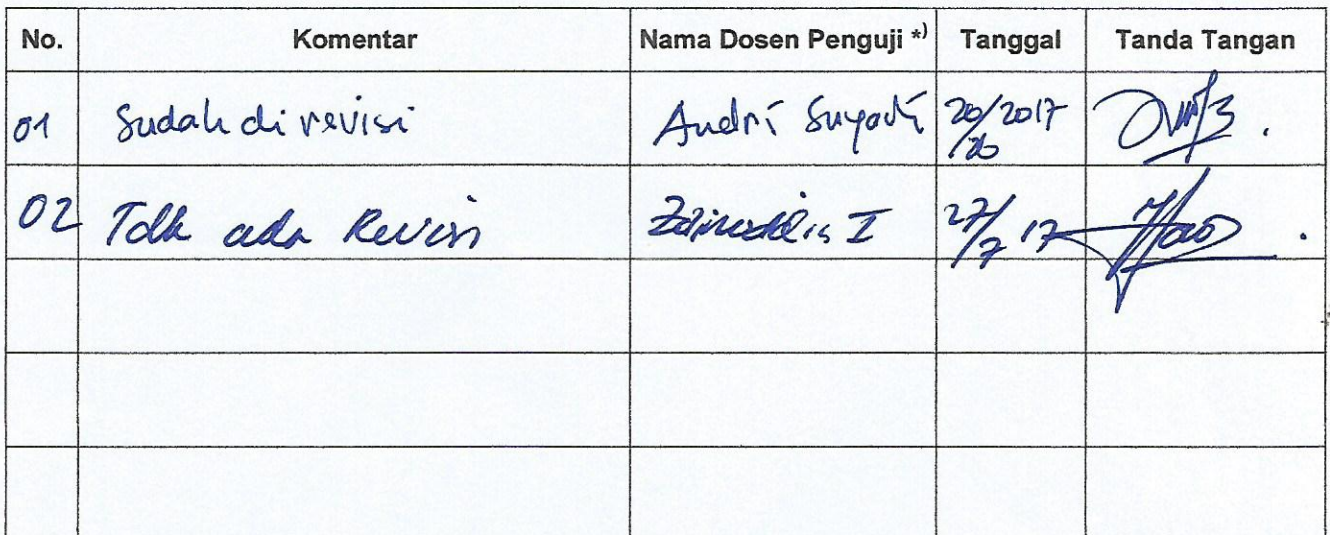 No. Komentar Nama Dosen Penguji *) Tanggal Tanda Tangan
01 Sudah di revisi Andri Suyadi 20/2017
02 Tdk ada Revisi I 27/7 17